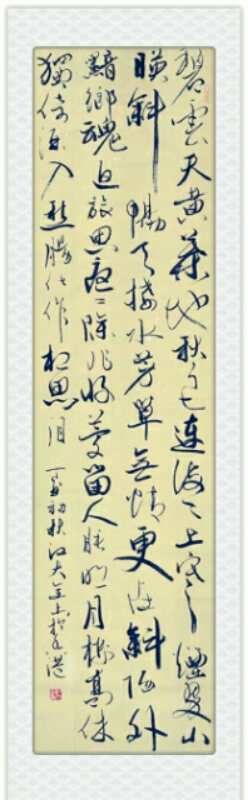 碧雲天黃葉地秋色連波々上寒煙翠山
暎斜陽天接水芳草無情更在斜陽外
黯鄉魂追旅思夜々除非好夢留人睡明月樓高休
獨倚酒入愁腸化作相思泪 初秋